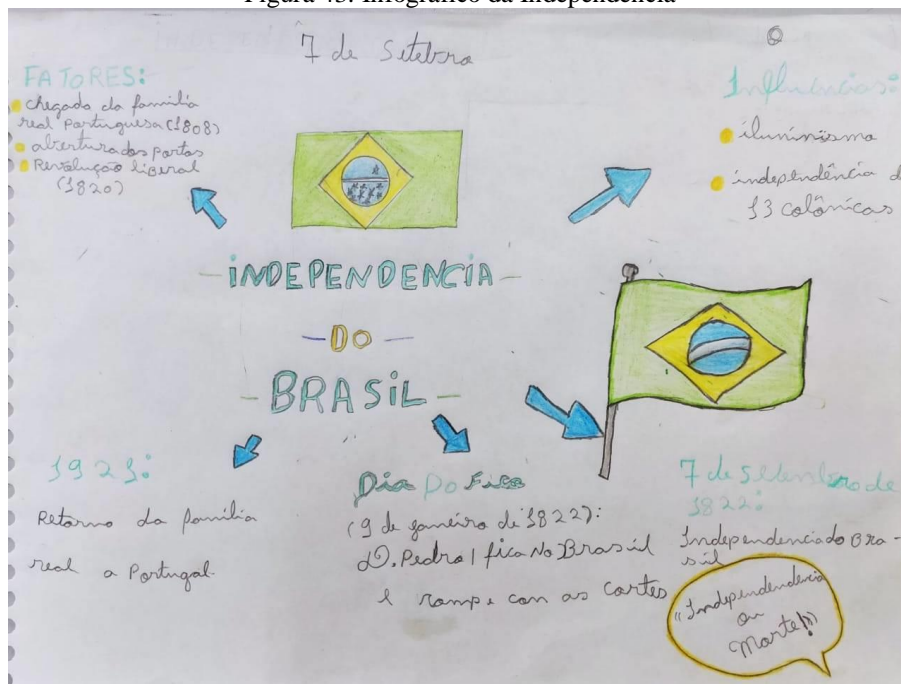 Figura 45: Infográfico da Independência
7 de Setebro
FATORES:
chegada da familia
real Portuguesa (1808)
abertura dos portos
Revolução liberal
(1820)
Influencias:
iluminismo
independência d
13 colônicas
INDEPENDENCIA
DO
BRASIL
1921:
Retorno da família
real a Portugal.
Dia Do Fico
(9 de janeiro de 1822):
D. Pedro I fica No Brasil
e rompe com as cortes
7 de setembro de
1822:
Independencia do Bra-
sil
"Independendencia
ou
Morte!!)